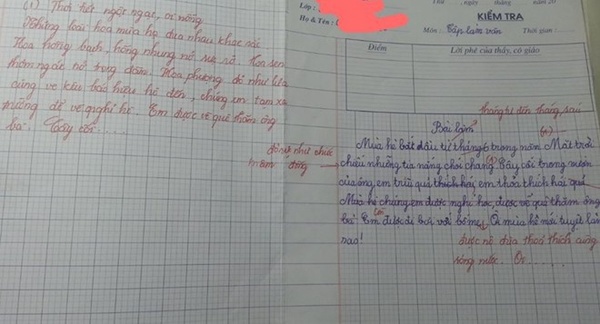 (1) Thời tiết ngột ngạt, oi nóng.
Những loài hoa mùa hạ đua nhau khoe sắc.
Hoa hồng bạch, hồng nhung nở rực rỡ. Hoa sen
thơm ngát nở trong đầm. Hoa phượng đỏ như lửa
cùng ve kêu báo hiệu hè đến, chúng em tạm xa
trường để về nghỉ hè. Em được về quê thăm ông
bà. Cây cối.....
Lớp:
Thứ ngày tháng năm 20
Họ & Tên:
KIỂM TRA
Môn: Tập làm văn Thời gian:
Điểm Lời phê của thầy, cô giáo
tháng tư đến tháng sáu
Bài làm
(1)
Mùa hè bắt đầu từ tháng 6 trong năm. Mặt trời
chiếu những tia nắng chói chang. Cây cối trong vườn
của ông em trĩu quả thích hái, em thỏa thích hái quả.
Mùa hè chúng em được nghỉ học, được về quê thăm ông
bà. Em được đi bơi với bố mẹ. Ôi mùa hè mới tuyệt làm
nao!
đỏ rực như chiếc
mâm đồng
được nô đùa thoả thích cùng
sóng nước. Ôi.......